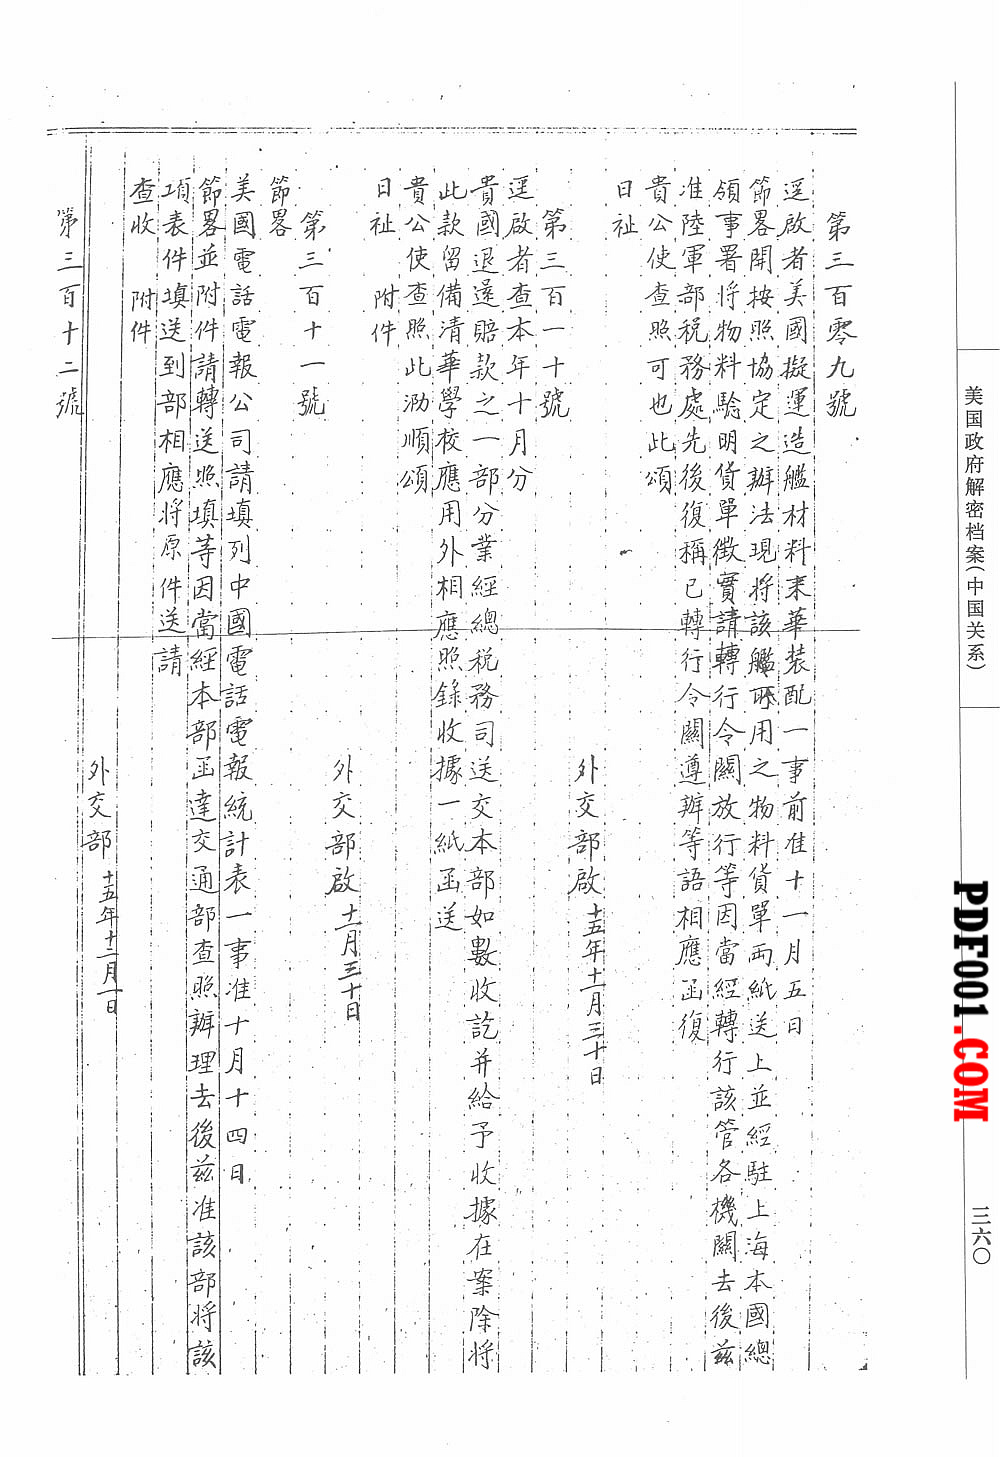 第三百零九號
逕啟者美國擬運造艦材料来華装配一事前准十一月五日
節畧開按照協定之辦法現将該艦所用之物料貨單両紙送上並經駐上海本國總
領事署将物料驗明貨單徵實請轉行令關放行等因當經轉行該管各機關去後兹
准陸軍部税務處先後復稱已轉行令關遵辦等語相應函復
貴公使查照可也此頌
日祉
外交部啟 十五年十一月三十日
第三百一十號
逕啟者查本年十月分
貴國退還賠款之一部分業經總税務司送交本部如數收訖并給予收據在案除将
此款留備清華學校應用外相應照錄收據一紙函送
貴公使查照此泐順頌
日祉 附件
外交部啟 十一月三十日
第三百十一號
節畧
美國電話電報公司請填列中國電話電報統計表一事准十月十四日
節畧並附件請轉送照填等因當經本部函達交通部查照辦理去後兹准該部将該
項表件填送到部相應将原件送請
查收 附件
外交部 十五年十二月一日
第三百十二號
美国政府解密档案(中国关系)
三六〇
PDF001.COM